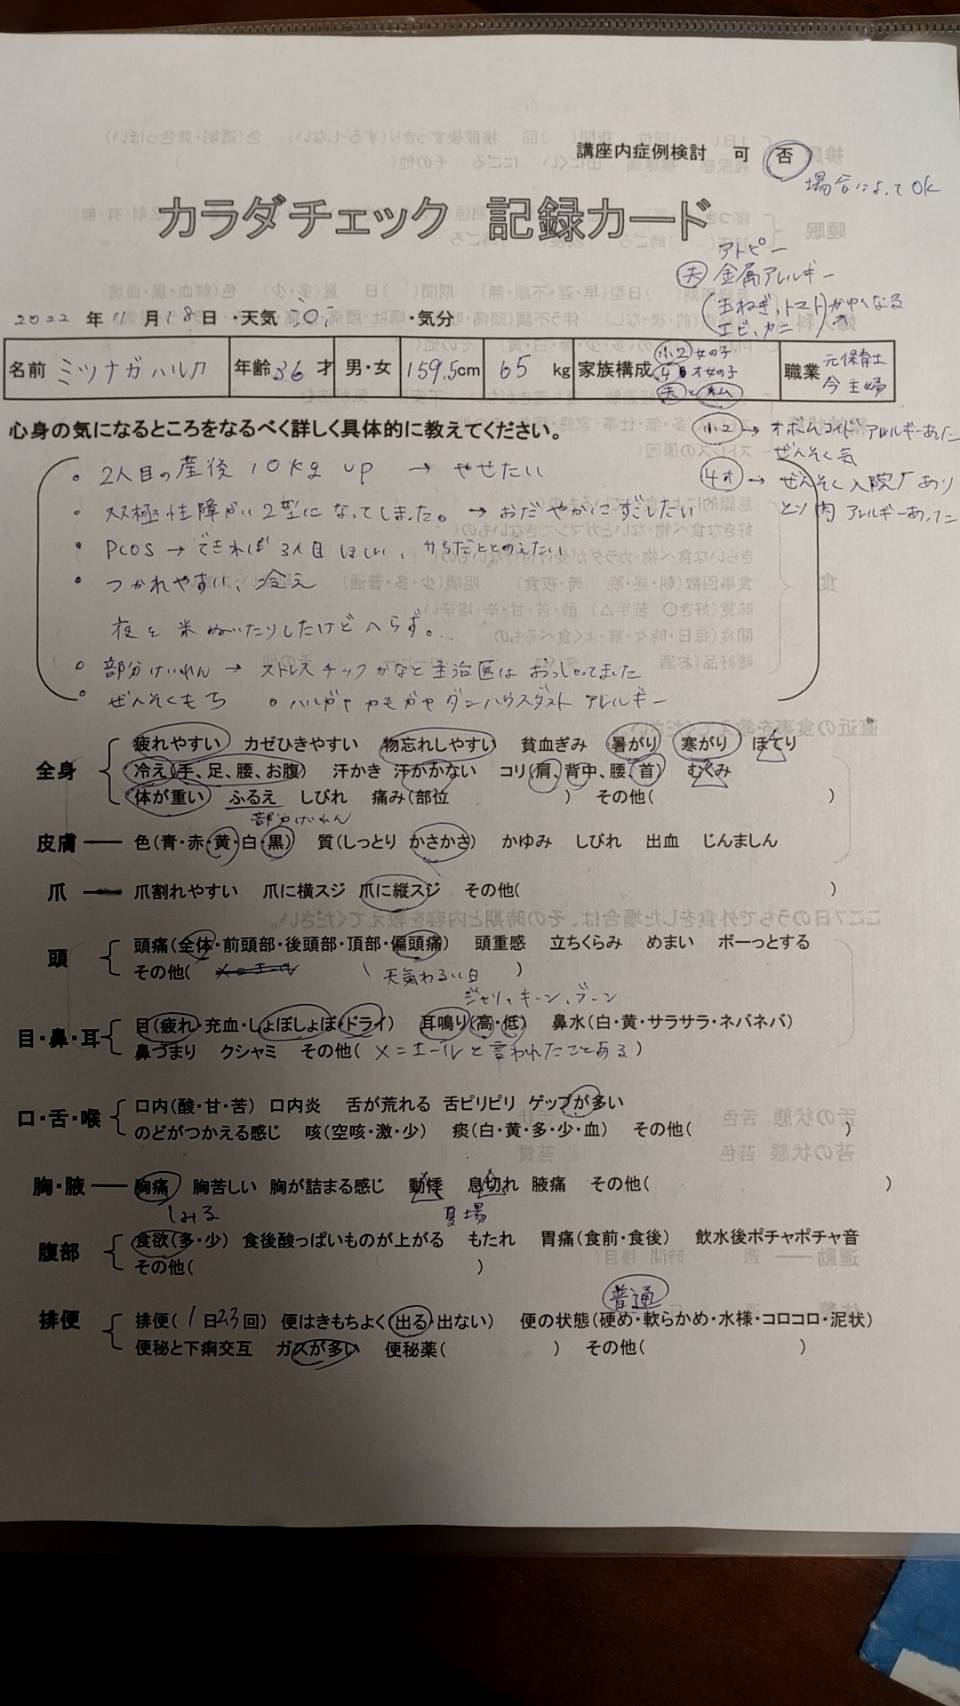 講座内症例検討 可 否
場合によってOK
カラダチェック 記録カード
アトピー
夫 金属アレルギー
(玉ねぎ、トマトかゆくなる
エビ、カニ
2022年11月18日 ・天気 ・気分
名前 ミツナガハルカ 年齢36才 男・女 159.5cm 65kg 家族構成 小2女の子 4才女の子 夫と私 職業 元保育士 今主婦
心身の気になるところをなるべく詳しく具体的に教えてください。
小2→オボムコイドアレルギーあった
ぜんそく気
4才→ぜんそく入院あり
とり肉アレルギーあった
・2人目の産後10kg up → やせたい
・双極性障がい2型になってしまった。→おだやかにすごしたい
・PCOS→できれば3人目ほしい、からだととのえたい
・つかれやすい、冷え
夜を米ぬいたりしたけどへらず。..
・部分けいれん → ストレスチックかなと主治医はおっしゃってました
・ぜんそくもち ・ハルガヤカモガヤダニハウスダストアレルギー
全身 疲れやすい カゼひきやすい 物忘れしやすい 貧血ぎみ 暑がり 寒がり ほてり
冷え(手、足、腰、お腹) 汗かき 汗かかない コリ(肩、背中、腰、首) むくみ
体が重い ふるえ しびれ 痛み(部位 ) その他( )
部分けいれん
皮膚 色(青・赤・黄・白・黒) 質(しっとり かさかさ) かゆみ しびれ 出血 じんましん
爪 爪割れやすい 爪に横スジ 爪に縦スジ その他( )
頭 頭痛(全体・前頭部・後頭部・頂部・偏頭痛) 頭重感 立ちくらみ めまい ボーっとする
その他( ) 天気わるい日
ジャリ、キーン、ブーン
目・鼻・耳 目(疲れ・充血・しょぼしょぼ・ドライ) 耳鳴り(高・低) 鼻水(白・黄・サラサラ・ネバネバ)
鼻づまり クシャミ その他(メニエールと言われたことある)
口・舌・喉 口内(酸・甘・苦) 口内炎 舌が荒れる 舌ピリピリ ゲップが多い
のどがつかえる感じ 咳(空咳・激・少) 痰(白・黄・多・少・血) その他( )
胸・腋 胸痛 胸苦しい 胸が詰まる感じ 動悸 息切れ 腋痛 その他( )
しみる 夏場
腹部 食欲(多・少) 食後酸っぱいものが上がる もたれ 胃痛(食前・食後) 飲水後ポチャポチャ音
その他( )
普通
排便 排便(1日23回) 便はきもちよく(出る・出ない) 便の状態(硬め・軟らかめ・水様・コロコロ・泥状)
便秘と下痢交互 ガスが多い 便秘薬( ) その他( )